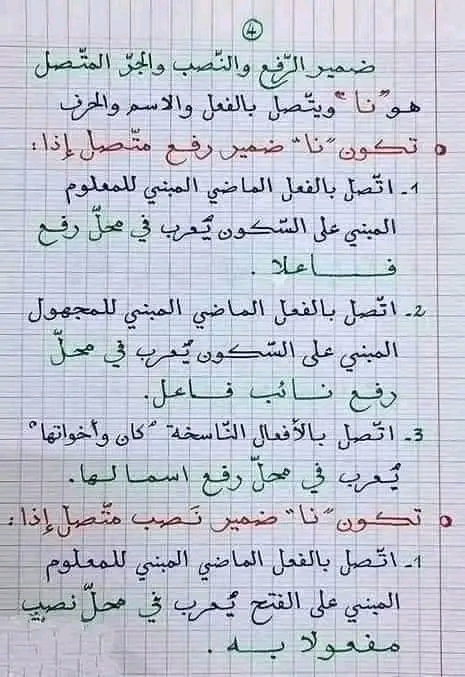 4
ضمير الرّفع والنّصب والجرّ المتّصل
هو "نا" ويتّصل بالفعل والاسم والحرف
تكون "نا" ضمير رفع متّصل إذا:
1- اتّصل بالفعل الماضي المبني للمعلوم
المبني على السّكون يُعرب في محلّ رفع
فاعلا.
2- اتّصل بالفعل الماضي المبني للمجهول
المبني على السّكون يُعرب في محلّ
رفع نائب فاعل.
3- اتّصل بالأفعال النّاسخة "كان وأخواتها"
يُعرب في محلّ رفع اسما لها.
تكون "نا" ضمير نَصب متّصل إذا:
1- اتّصل بالفعل الماضي المبني للمعلوم
المبني على الفتح يُعرب في محلّ نصب
مفعولا به.